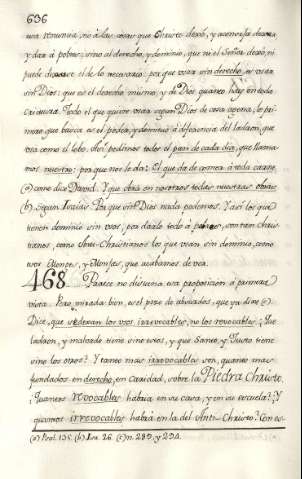 636
una renuncia, no à las cosas que Christo dexó, y aconseja dexar
y dar à pobres, sino al derecho, y dominio, que ni el Señor dexó, ni
puede dexarse el de lo necesario: por que usar sin derecho, es usar
sin Dios; que es el derecho mismo, y de Dios quanto hay en toda
criatura. Todo el que quiere usar segun Dios de cosa agena, lo pri-
mero que busca es el pedir, y dominio à diferencia del ladron, que
usa como el lobo. Assi pedimos todos el pan de cada dia, que llama-
mos nuestro: por que nos lo da: El que da de comer à toda carne,
(a) como dice David. Y que obra en nosotros todas nuestras obras
(b), segun Isaias. Por que sin Dios nada podemos. Y assi los que
tienen dominio sin uso, por darlo todo à pobres, son tan Chris-
tianos, como Ante-Christianos los que usan sin dominio, como
usar Monges, y Monjas, que acabamos de ver.
468. Parece no disuena esa proposicion à primera
vista. Pero mirada bien, es el pan de abusados, que ya dixe (c)
Dice, que se dexan los usos irrevocables, no los revocables. ¿Que
ladron, y malvado tiene sino estos, y que Santo, y Justo tiene
sino los otros? Y tanto mas irrevocables son, quanto mas
fundados en derecho, en Caridad, sobre la Piedra Christo.
¿Quantos revocables habria en su casa, y en su escuela? ¿Y
quantos irrevocables habria en la del Anti-Christo? Con es-
(a) Psal. 135. (b) Isa. 26. (c) n. 289, y 290.